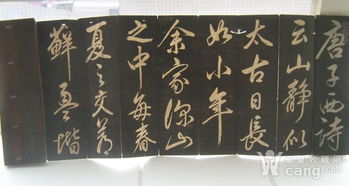 唐子西詩
云山静似
太古日長
如小年
余家深山
之中每春
夏之交蒼
蘚盈堦
华夏收藏网